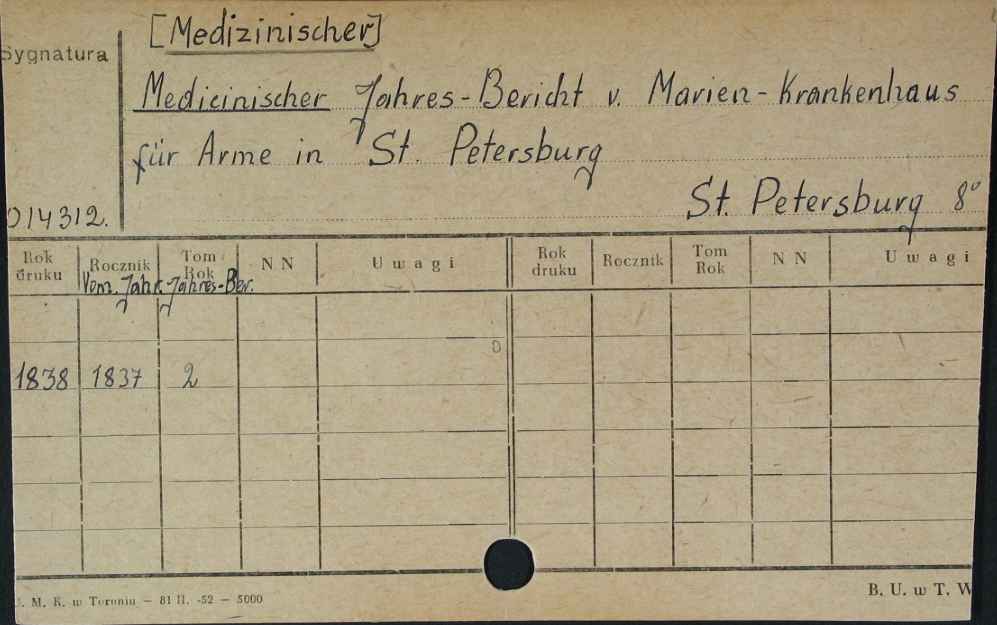 [Medizinischer]
Sygnatura
Medicinischer Jahres-Bericht v. Marien-Krankenhaus
für Arme in St. Petersburg
St. Petersburg 8°
014312.
Rok druku Rocznik Tom Rok NN Uwagi Rok druku Rocznik Tom Rok NN Uwagi
Vom. Jahr. Jahres-Ber.
1838 1837 2
M. K. w Toruniu — 81 II. -52 — 5000
B. U. w T. W